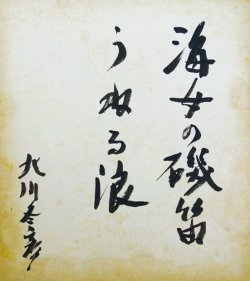 海女の磯笛
うねる浪
北川冬彦